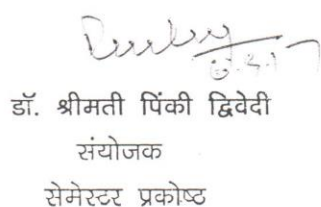 डॉ. श्रीमती पिंकी द्विवेदी
संयोजक
सेमेस्टर प्रकोष्ठ